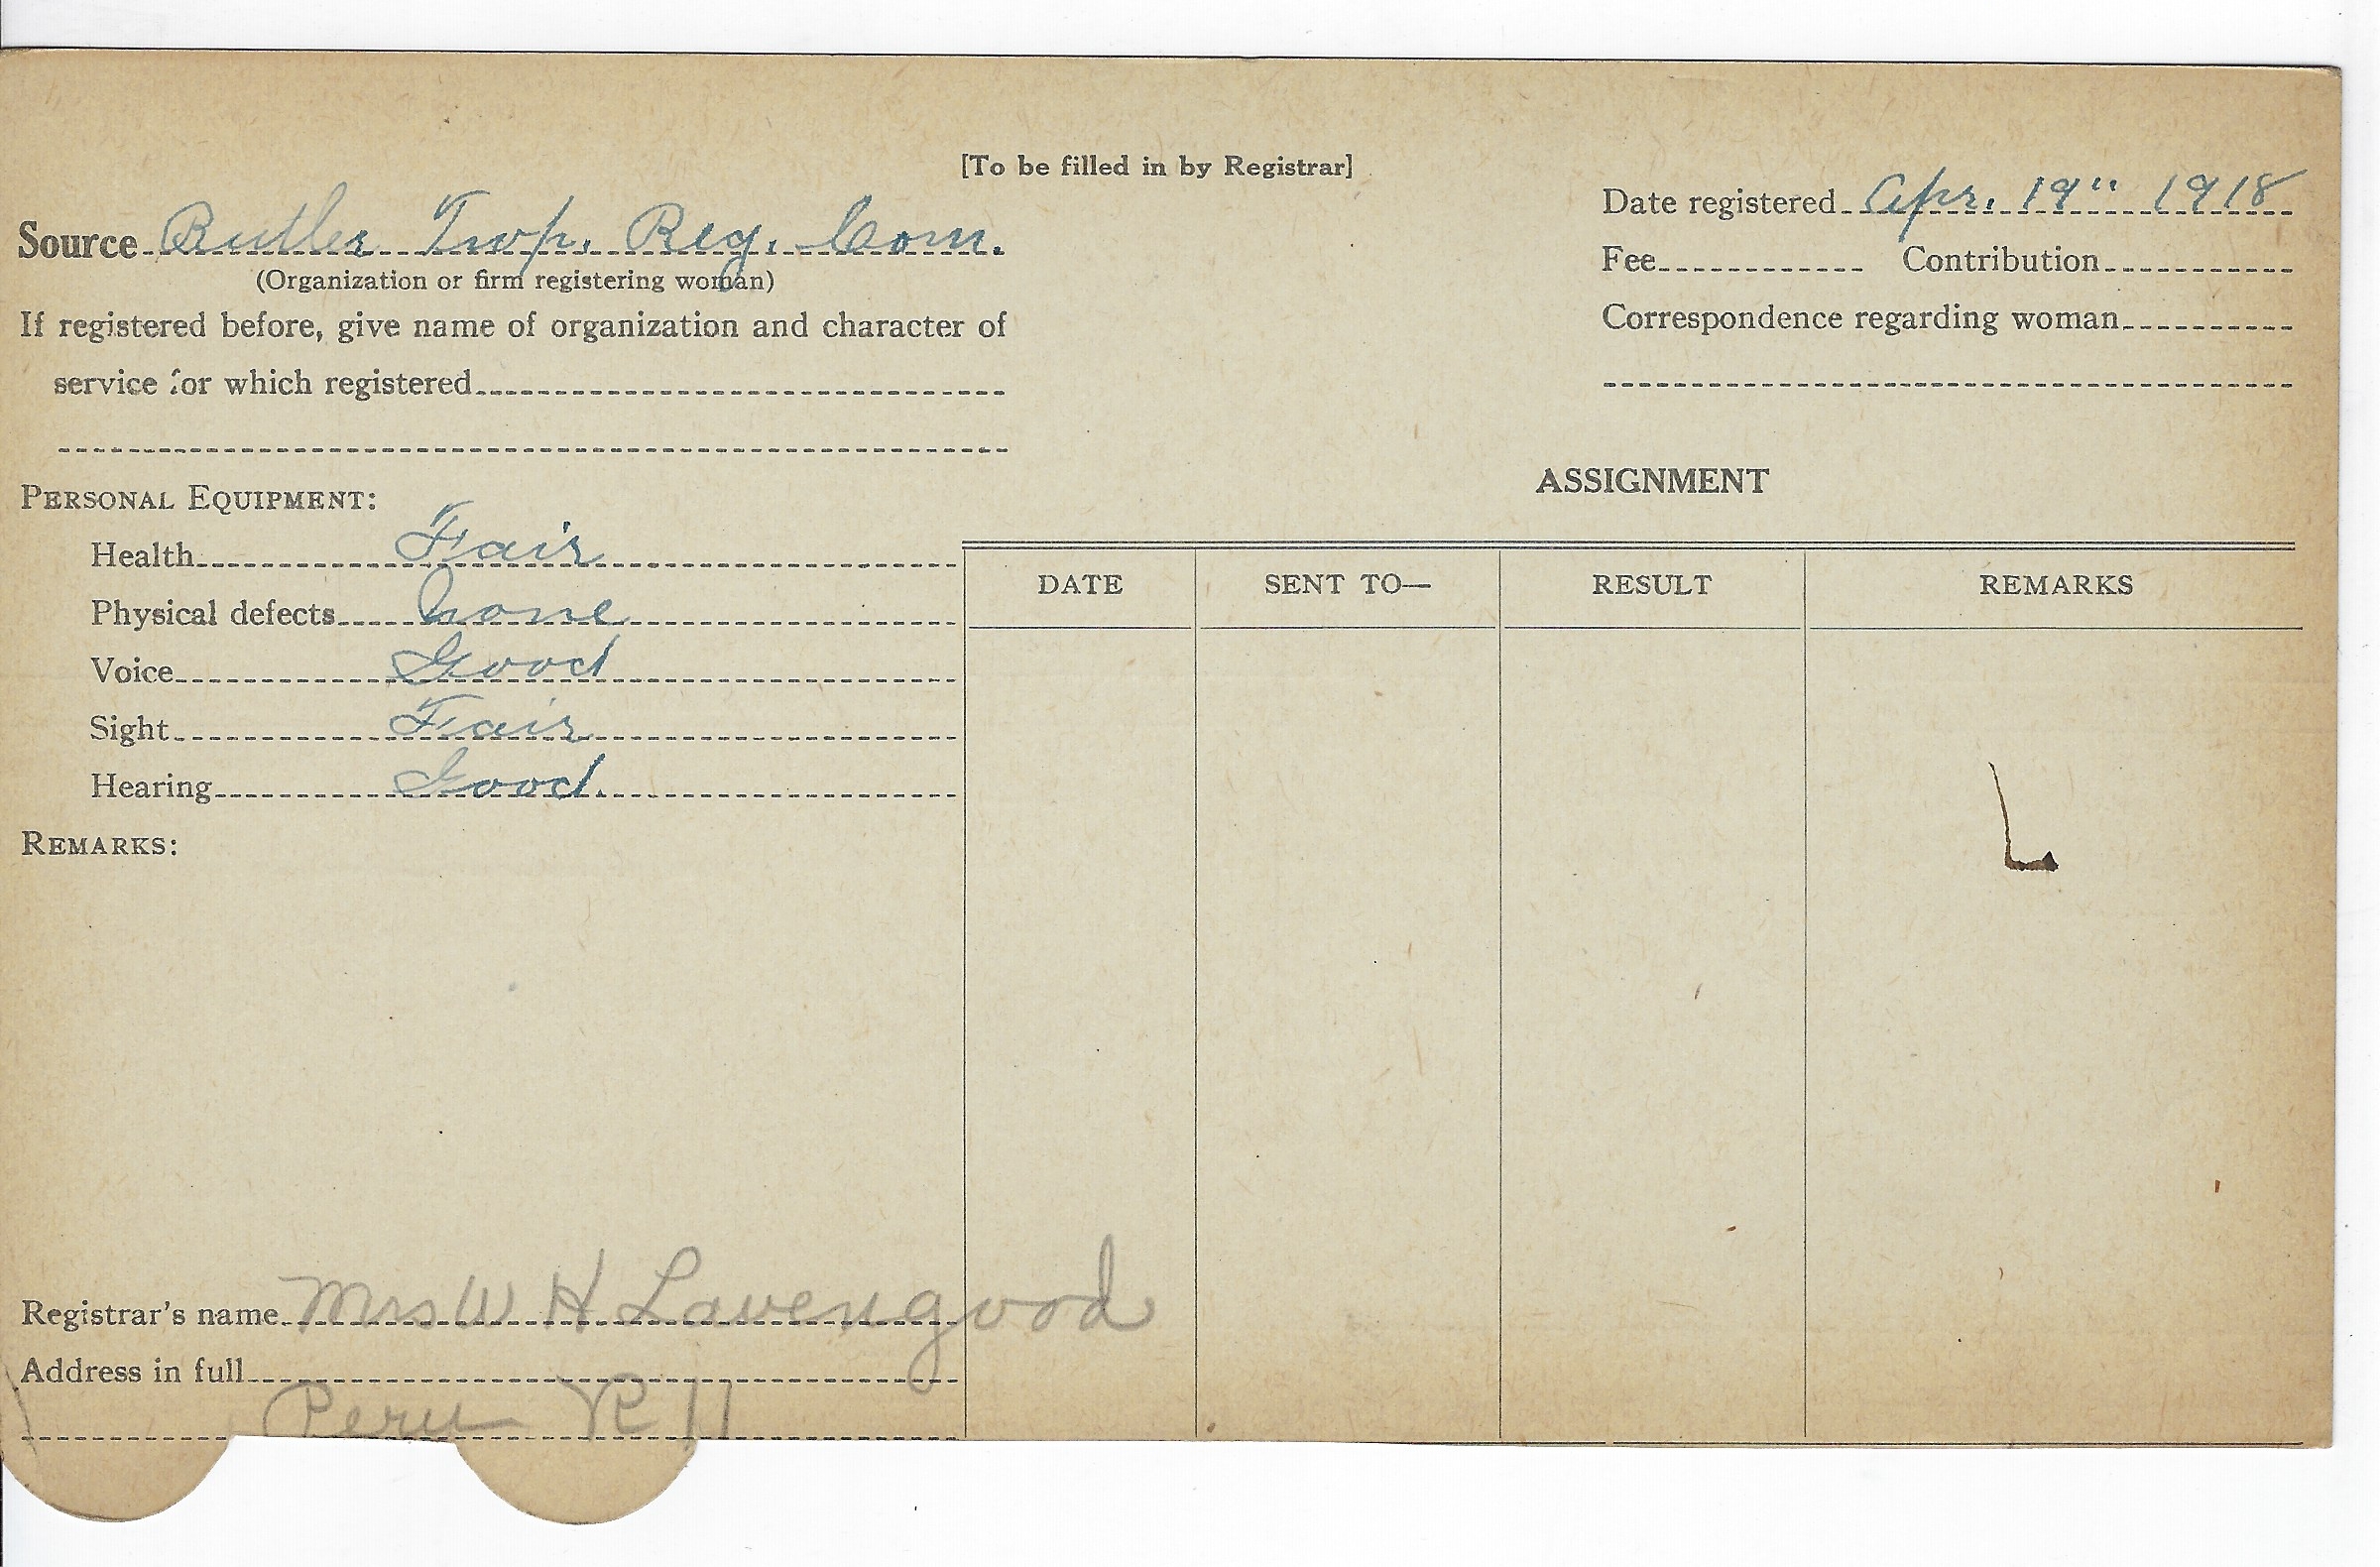 [To be filled in by Registrar]
Source Butler Twp. Reg. Com.
(Organization or firm registering woman)
If registered before, give name of organization and character of
service for which registered
Date registered Apr. 19" 1918
Fee Contribution
Correspondence regarding woman
PERSONAL EQUIPMENT:
Health Fair
Physical defects none
Voice Good
Sight Fair
Hearing Good.
REMARKS:
ASSIGNMENT
DATE SENT TO— RESULT REMARKS
Registrar's name Mrs W H Lavengood
Address in full
Peru R 11